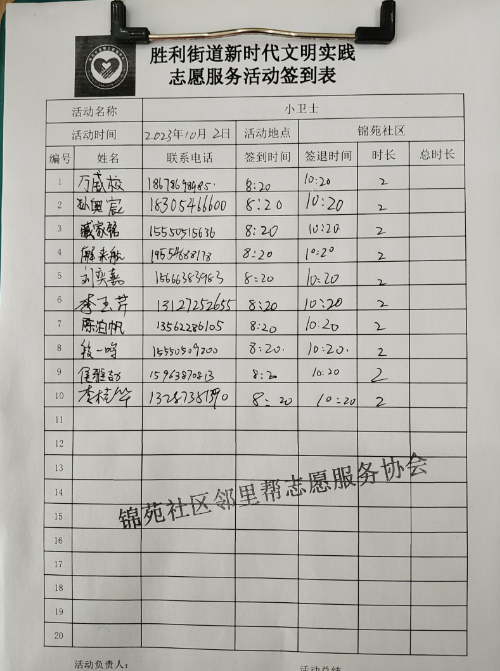 胜利街道新时代文明实践
志愿服务活动签到表
活动名称 小卫士
活动时间 2023年10月2日 活动地点 锦苑社区
编号 姓名 联系电话 签到时间 签退时间 时长 总时长
1 8:20 10:20 2
2 18305466600 8:20 10:20 2
3 15550515636 8:20 10:20 2
4 8:20 10:20 2
5 刘奕嘉 15666383983 8:20 10:20 2
6 李玉芹 13127252655 8:20 10:20 2
7 陈泊帆 13562286105 8:20 10:20 2
8 一鸣 15550509200 8:20 10:20 2
9 15963870813 8:20 10:20 2
10 李桂华 8:20 10:20 2
11
12
13
锦苑社区邻里帮志愿服务协会
14
15
16
17
18
19
20
活动负责人: 活动总结